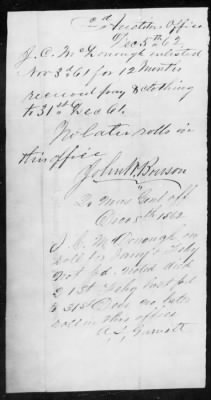 2nd Auditors Office
Dec 5th 62.
J. C. McDonough enlisted
Nov 3d 61 for 12 Months
received pay & clothing
to 31st Dec 61.
No later rolls in
this office
John W. Brown
2d Dec 5th 1862
J. C. McDonough on
roll for Jany & Feby
not pd. noted died
21st Feby last pd
to 31st Dec. no later
rolls in this office